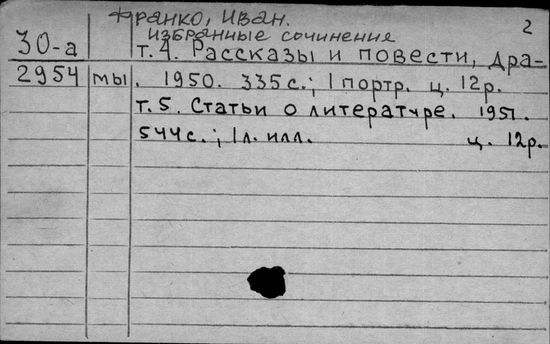 Франко, Иван. 2
избранные сочинения
30-а т. 4. Рассказы и повести, дра-
2954 мы. 1950. 335 с.; 1 портр. ц. 12р.
т. 5. Статьи о литературе. 1951.
544с.; 1л. илл. ц. 12р.